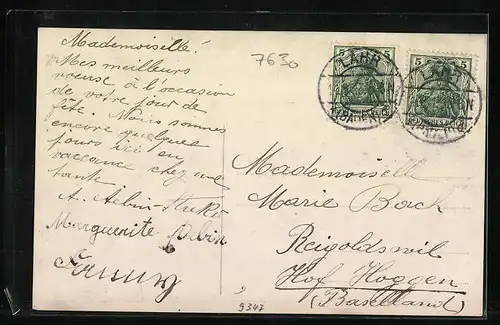 Mademoiselle!
Mes meilleurs
voeuse à l'occasion
de votre jour de
fête. Nous sommes
encore quelques
jours ici en
vaccance chez une
tante.
A. Aebin-
Marguerite Aebin
Fanny
7630
5 5
5 5
LAHR
(BADEN)
LAHR
Mademoiselle
Marie Bach
Reigoldswil
Hof Hoggen
(Baselland)
9347